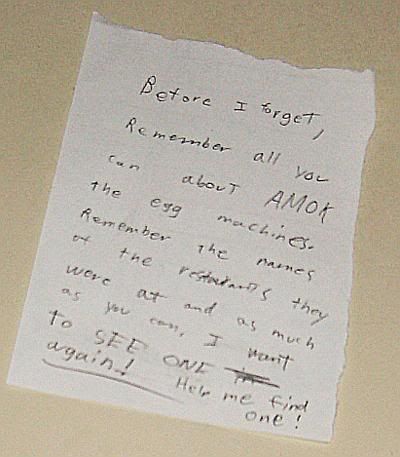 Before I forget,
Remember all you
can about AMOK
the egg machines.
Remember the names
of the restaurants they
were at and as much
as you can, I want
to SEE ONE
again! Help me find
one!